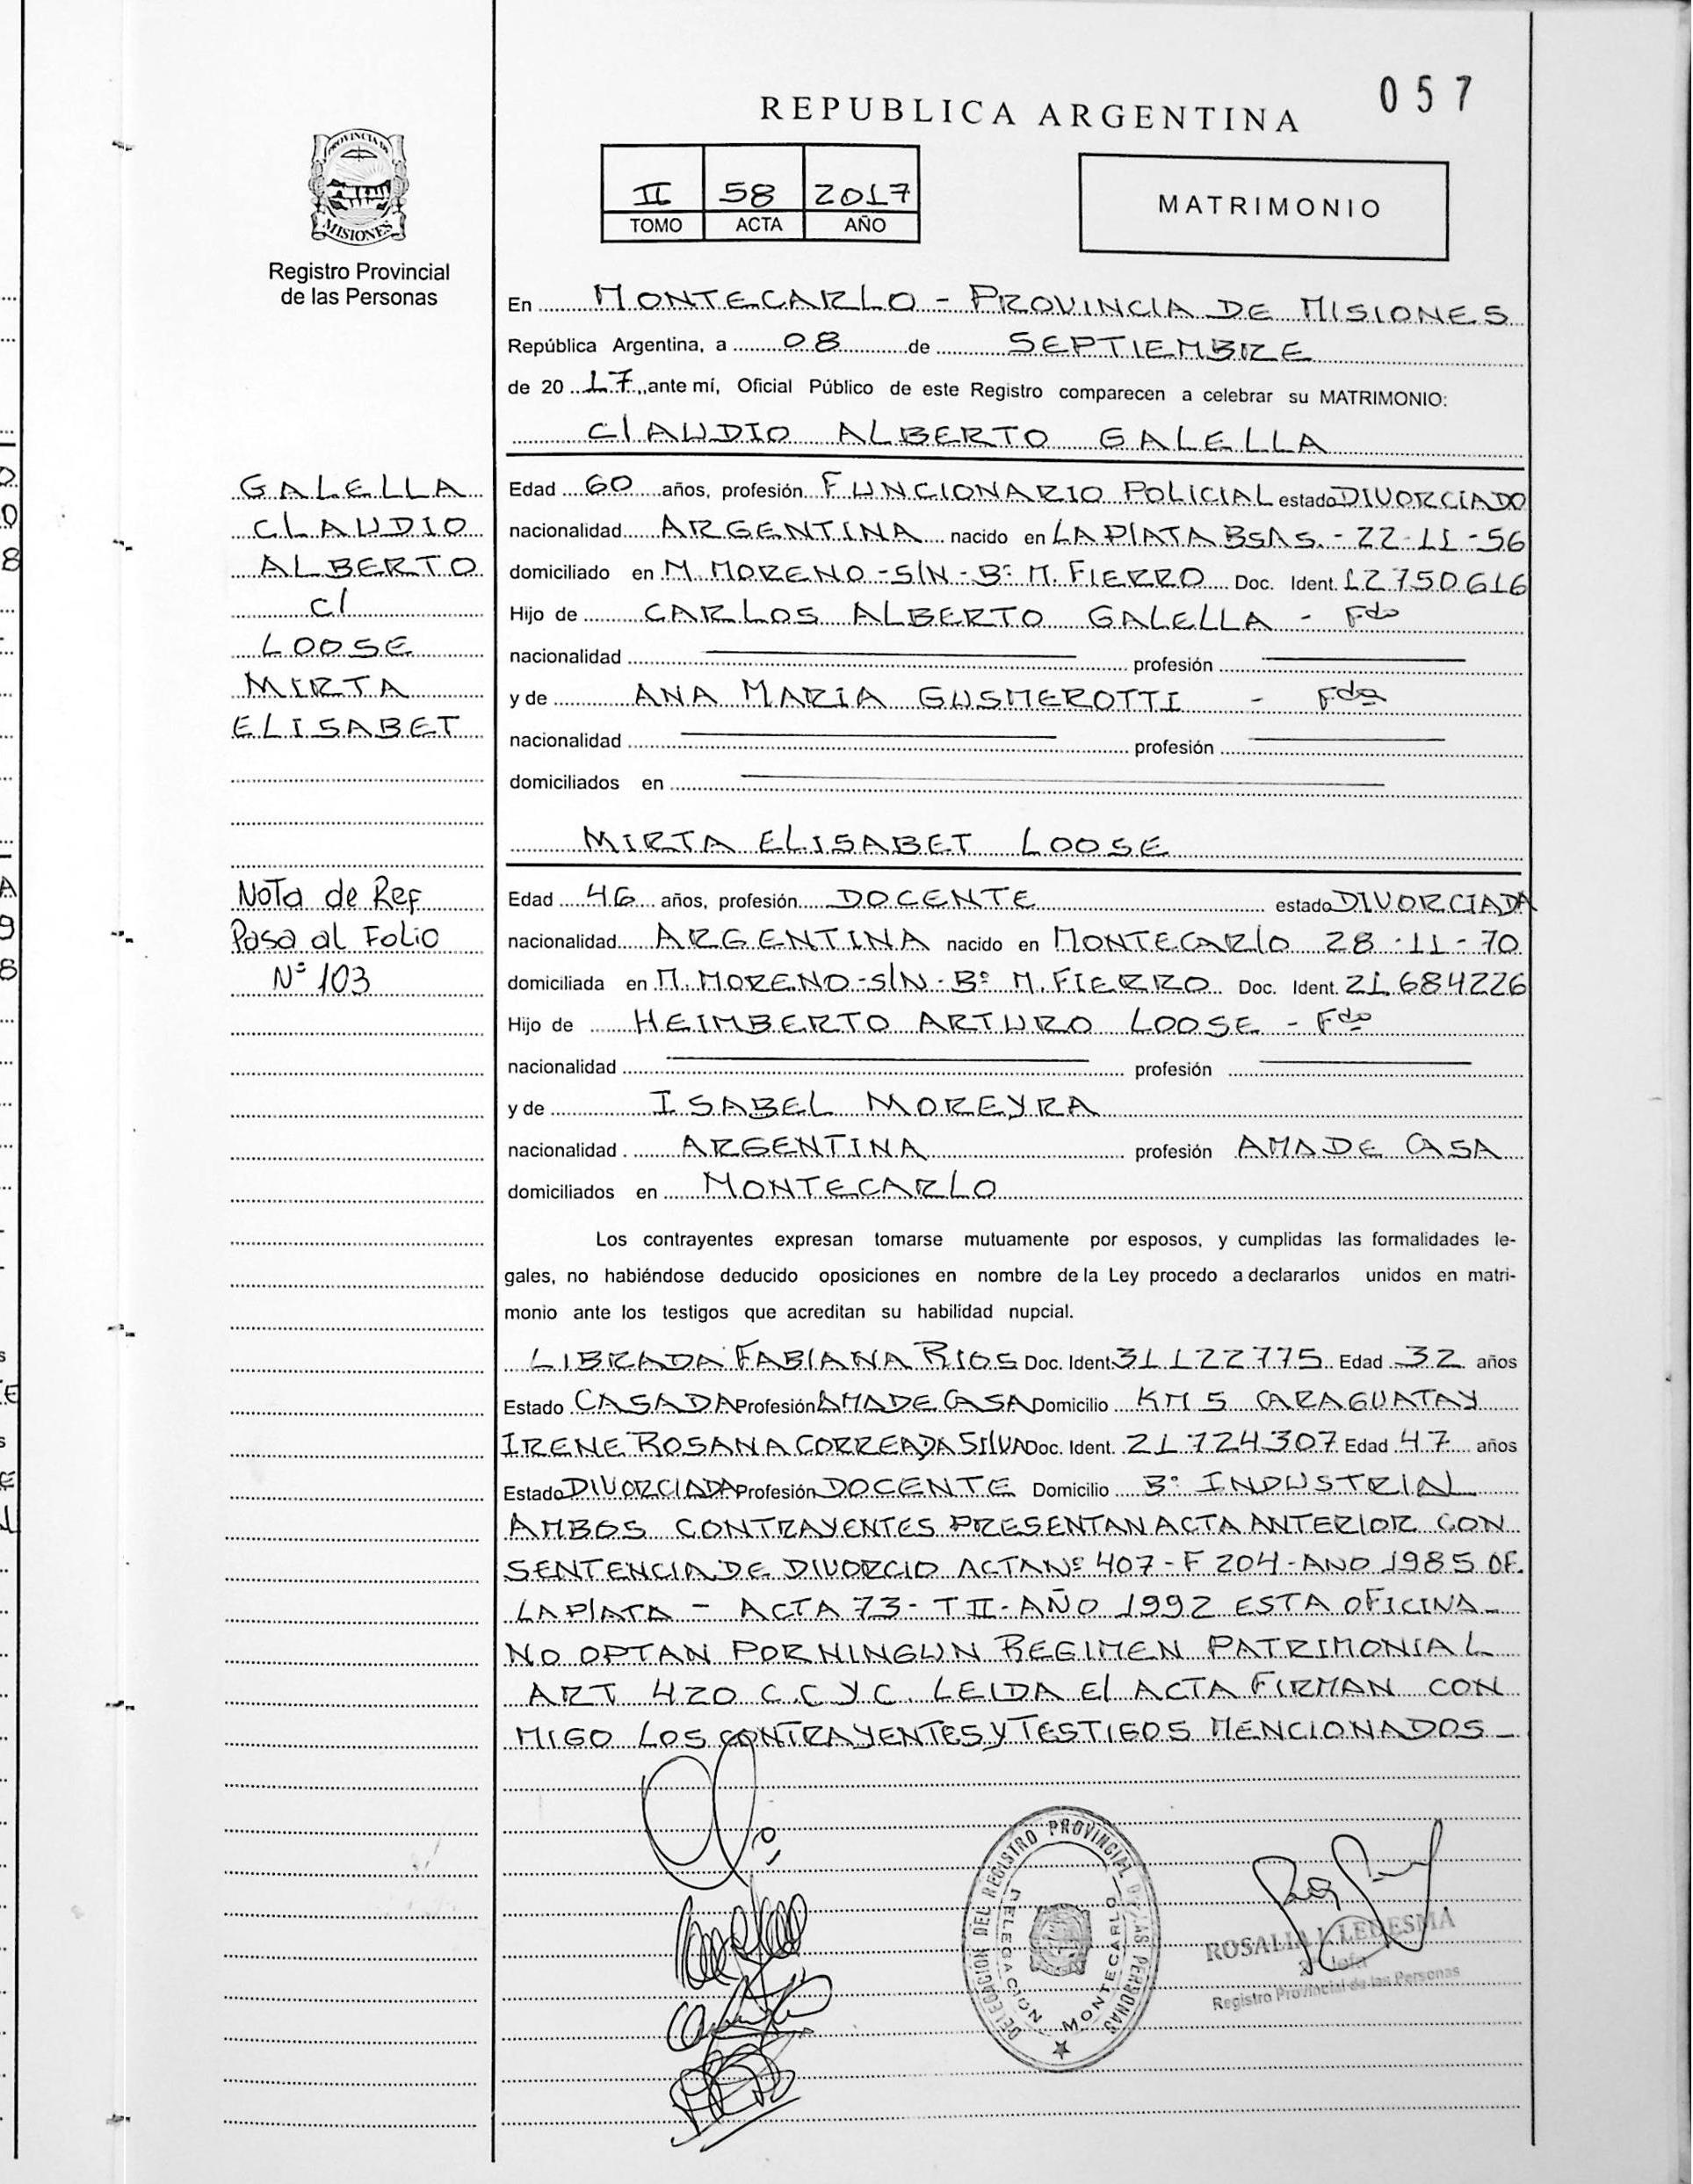 057
REPUBLICA ARGENTINA
II 58 2017
TOMO ACTA AÑO
MATRIMONIO
PROVINCIA DE
MISIONES
Registro Provincial
de las Personas
En MONTECARLO - PROVINCIA DE MISIONES
República Argentina, a 08 de SEPTIEMBRE
de 20 17, ante mí, Oficial Público de este Registro comparecen a celebrar su MATRIMONIO:
ClAUDIO ALBERTO GALELLA
GALELLA
CLAUDIO
ALBERTO
c/
LOOSE
MIRTA
ELISABET
Edad 60 años, profesión FUNCIONARIO POLICIAL estado DIVORCIADO
nacionalidad ARGENTINA nacido en LA PlATA BsAs. - 22-11-56
domiciliado en M. MORENO - S/N - Bº M. FIERRO Doc. Ident. 12750616
Hijo de CARLOS ALBERTO GALELLA - Fdo
nacionalidad profesión
y de ANA MARIA GUSMEROTTI - Fda
nacionalidad profesión
domiciliados en
MIRTA ELISABET LOOSE
Nota de Ref
Pasa al Folio
Nº 103
Edad 46 años, profesión DOCENTE estado DIVORCIADA
nacionalidad ARGENTINA nacido en MONTECARlO 28-11-70
domiciliada en M. MORENO - S/N - Bº M. FIERRO Doc. Ident. 21684226
Hijo de HEIMBERTO ARTURO LOOSE - Fdo
nacionalidad profesión
y de ISABEL MOREYRA
nacionalidad ARGENTINA profesión AMA DE CASA
domiciliados en MONTECARLO
Los contrayentes expresan tomarse mutuamente por esposos, y cumplidas las formalidades le-
gales, no habiéndose deducido oposiciones en nombre de la Ley procedo a declararlos unidos en matri-
monio ante los testigos que acreditan su habilidad nupcial.
LIBRADA FABIANA RIOS Doc. Ident. 31122775 Edad 32 años
Estado CASADA Profesión AMA DE CASA Domicilio KM 5 CARAGUATAY
IRENE ROSANA CORREA DA SIlVA Doc. Ident. 21724307 Edad 47 años
Estado DIVORCIADA Profesión DOCENTE Domicilio Bº INDUSTRIAL
AMBOS CONTRAYENTES PRESENTAN ACTA ANTERIOR CON
SENTENCIA DE DIVORCIO ACTA Nº 407 - F 204 - AÑO 1985 OF.
LA PlATA - ACTA 73 - T II - AÑO 1992 ESTA OFICINA -
NO OPTAN POR NINGUN REGIMEN PATRIMONIAL
ART 420 C.C.Y.C. LEIDA El ACTA FIRMAN CON
MIGO LOS CONTRAYENTES Y TESTIGOS MENCIONADOS -
DELEGACION DEL REGISTRO PROVINCIAL DE LAS PERSONAS
DELEGACION MONTECARLO
ROSALIA LEDESMA
Jefa
Registro Provincial de las Personas